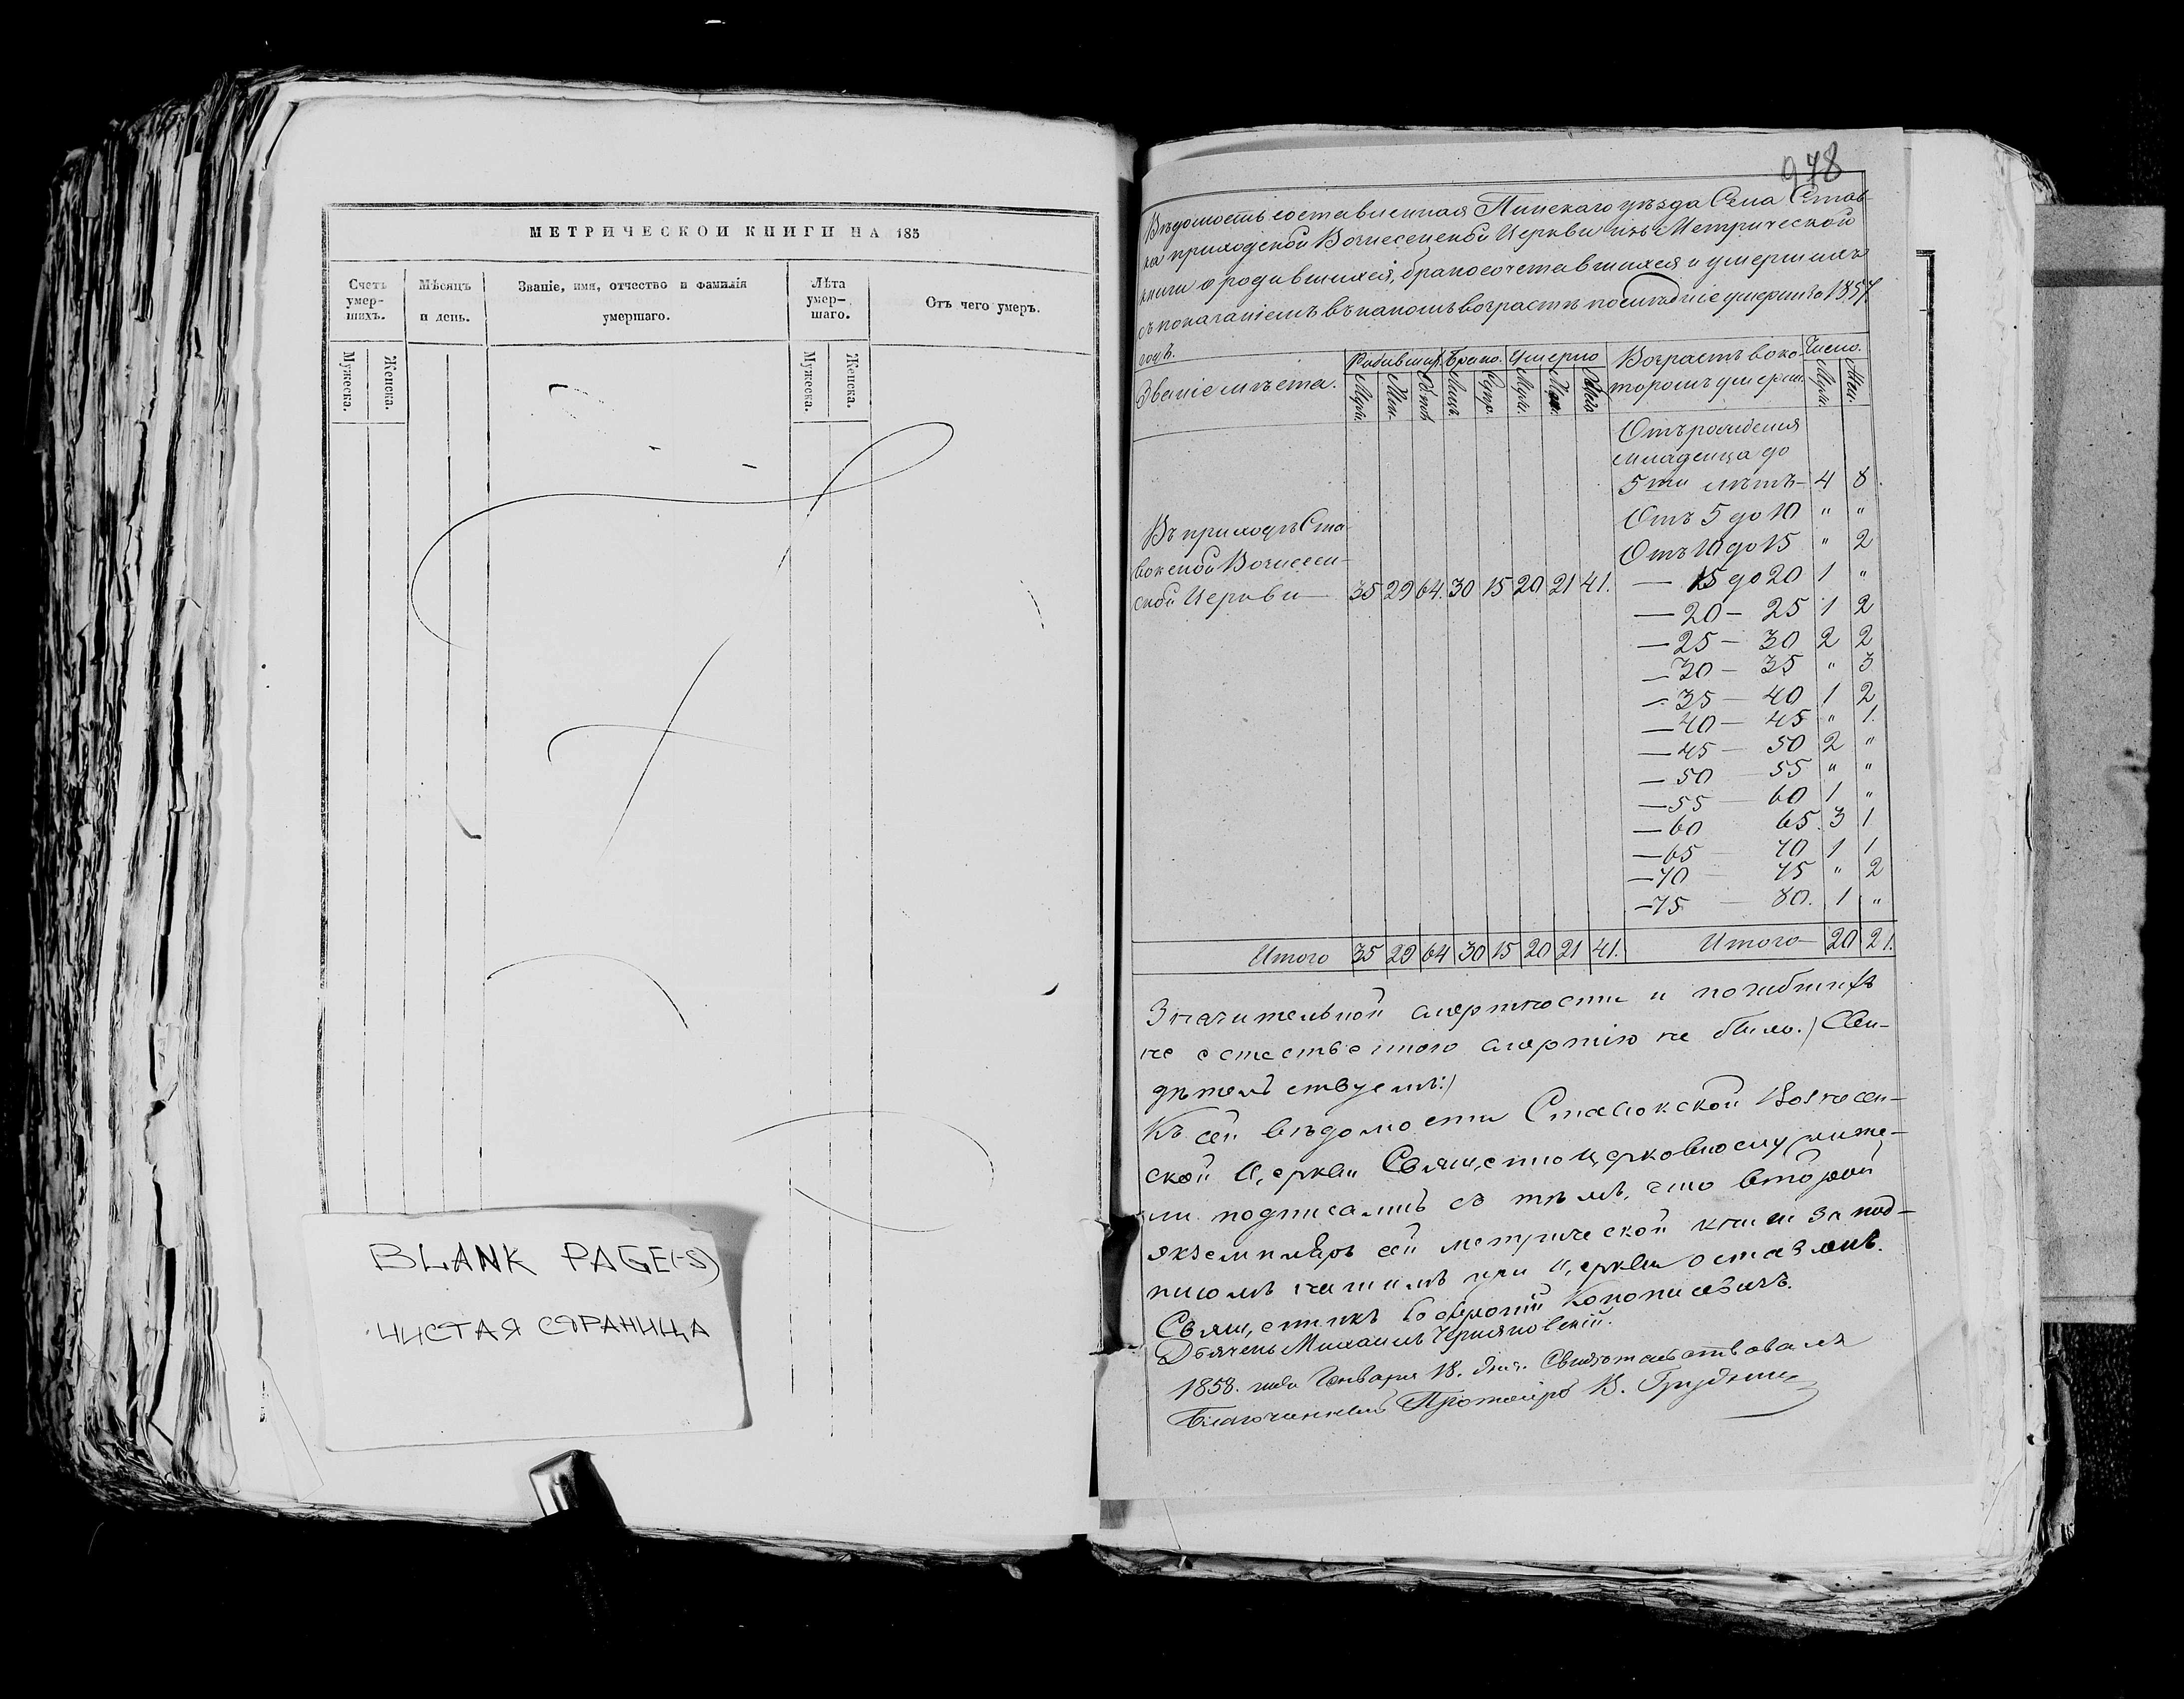 МЕТРИЧЕСКОЙ КНИГИ НА 185
Счетъ умер-шихъ.
Мѣсяцъ и день.
Званіе, имя, отчество и фамилія умершаго.
Лѣта умер-шаго.
Отъ чего умеръ.
Мужеска.
Женска.
Мужеска.
Женска.
BLANK PAGE(-S)
ЧИСТАЯ СТРАНИЦА
978
Вѣдомость составленная Пинскаго уѣзда Села Став-
ка приходской Вознесенской Церкви изъ Метрической
книги о родившихся, бракосочетавшихся и умершихъ
съ показаніемъ въ какомъ возрастѣ послѣдніе умерли за 1857
годъ.
Званіе мѣста.
Родивших. Брако. Умерло
Возрастъ въ ко-
торомъ умерли.
Число.
Муж. Жен. Лицъ Супр. Муж. Жен.
Муж. Жен.
Отъ рожденія
младенца до
5ти лѣтъ — 4 8
Отъ 5 до 10 " "
Отъ 10 до 15 " 2
— 15 до 20 1 "
Въ приходѣ Ста-
вокской Вознесен-
ской Церкви — 35 29 64. 30 15 20 21 41.
— 20 — 25 1 2
— 25 — 30 2 2
— 30 — 35 " 3
— 35 — 40 1 2
— 40 — 45 " 1.
— 45 — 50 2 "
— 50 55 " "
— 55 — 60 1 "
— 60 65. 3 1
— 65 — 70 1 1
— 70 — 75 " 2
— 75 — 80. 1 "
Итого 35 29 64 30 15 20 21 41. Итого — 20 21.
Значительной смертности и погибшихъ
не естественною смертію не было./ Сви-
дѣтельствуемъ:/
Къ сей вѣдомости Ставокской Вознесен-
ской Церкви Священноцерковнослужите-
ли подписались съ тѣмъ, что второй
экземпляръ сей метрической книги за под-
писомъ нашимъ при Церкви оставленъ.
Священникъ
Дьячекъ Михаилъ
1858. года Января 18. дня. Свидѣтельствовалъ
Благочинный Протоіерей В. Грудницкій